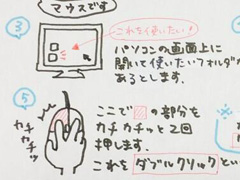 マウスです
③
これを使いたい!
パソコンの画面上に
開いて使いたいフォルダが
あるとします。
⑤
カチカチッ
ここで の部分を
カチカチッと2回
押します。
これを ダブルクリック とい